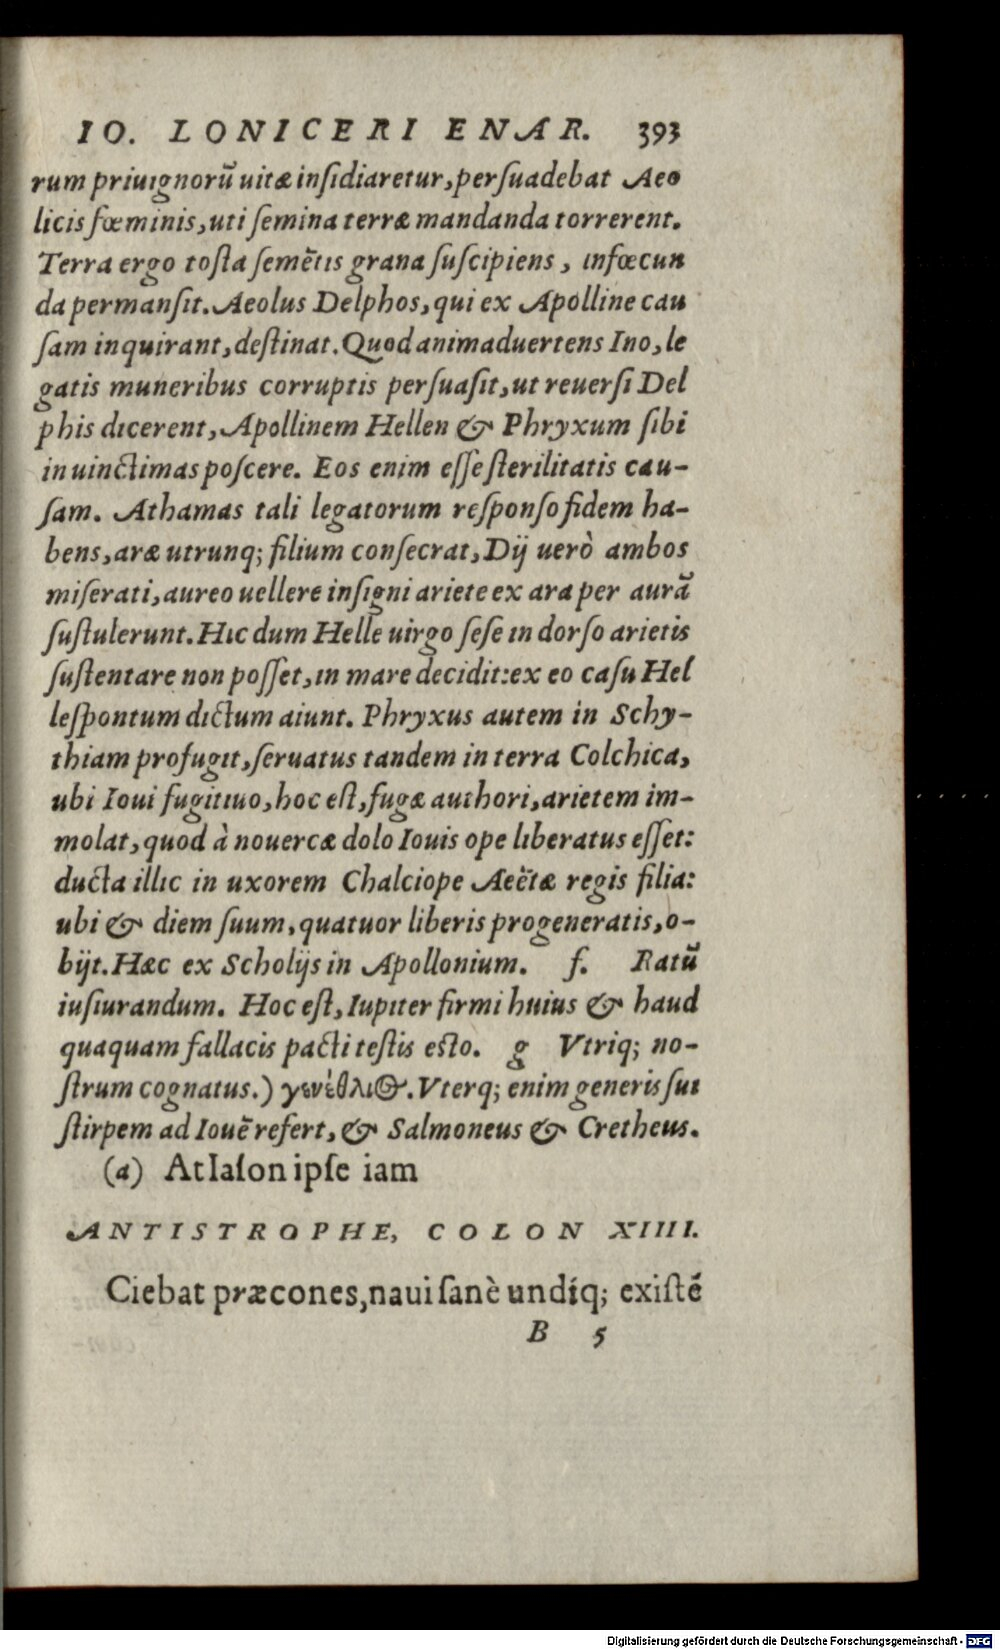 IO. LONICERI ENAR. 393
rum priuignorũ uitæ insidiaretur, persuadebat Aeo
licis fœminis, uti semina terræ mandanda torrerent.
Terra ergo tosta semẽtis grana suscipiens, infœcun
da permansit. Aeolus Delphos, qui ex Apolline cau
sam inquirant, destinat. Quod animaduertens Ino, le
gatis muneribus corruptis persuasit, ut reuersi Del
phis dicerent, Apollinem Hellen & Phryxum sibi
in uinctimas poscere. Eos enim esse sterilitatis cau-
sam. Athamas tali legatorum responso fidem ha-
bens, aræ utrunq; filium consecrat, Dij uerò ambos
miserati, aureo uellere insigni ariete ex ara per aurã
sustulerunt. Hic dum Helle uirgo sese in dorso arietis
sustentare non posset, in mare decidit: ex eo casu Hel
lespontum dictum aiunt. Phryxus autem in Schy-
thiam profugit, seruatus tandem in terra Colchica,
ubi Ioui fugitiuo, hoc est, fugæ authori, arietem im-
molat, quod à nouercæ dolo Iouis ope liberatus esset:
ducta illic in uxorem Chalciope Aeëtæ regis filia:
ubi & diem suum, quatuor liberis progeneratis, o-
bijt. Hæc ex Scholijs in Apollonium. f. Ratũ
iusiurandum. Hoc est, Iupiter firmi huius & haud
quaquam fallacis pacti testis esto. g Vtriq; no-
strum cognatus.) γενέθλιος. Vterq; enim generis sui
stirpem ad Iouẽ refert, & Salmoneus & Cretheus.
(a) At Iason ipse iam
ANTISTROPHE, COLON XIIII.
Ciebat præcones, naui sanè undíq; existẽ
B 5
Digitalisierung gefördert durch die Deutsche Forschungsgemeinschaft - DFG